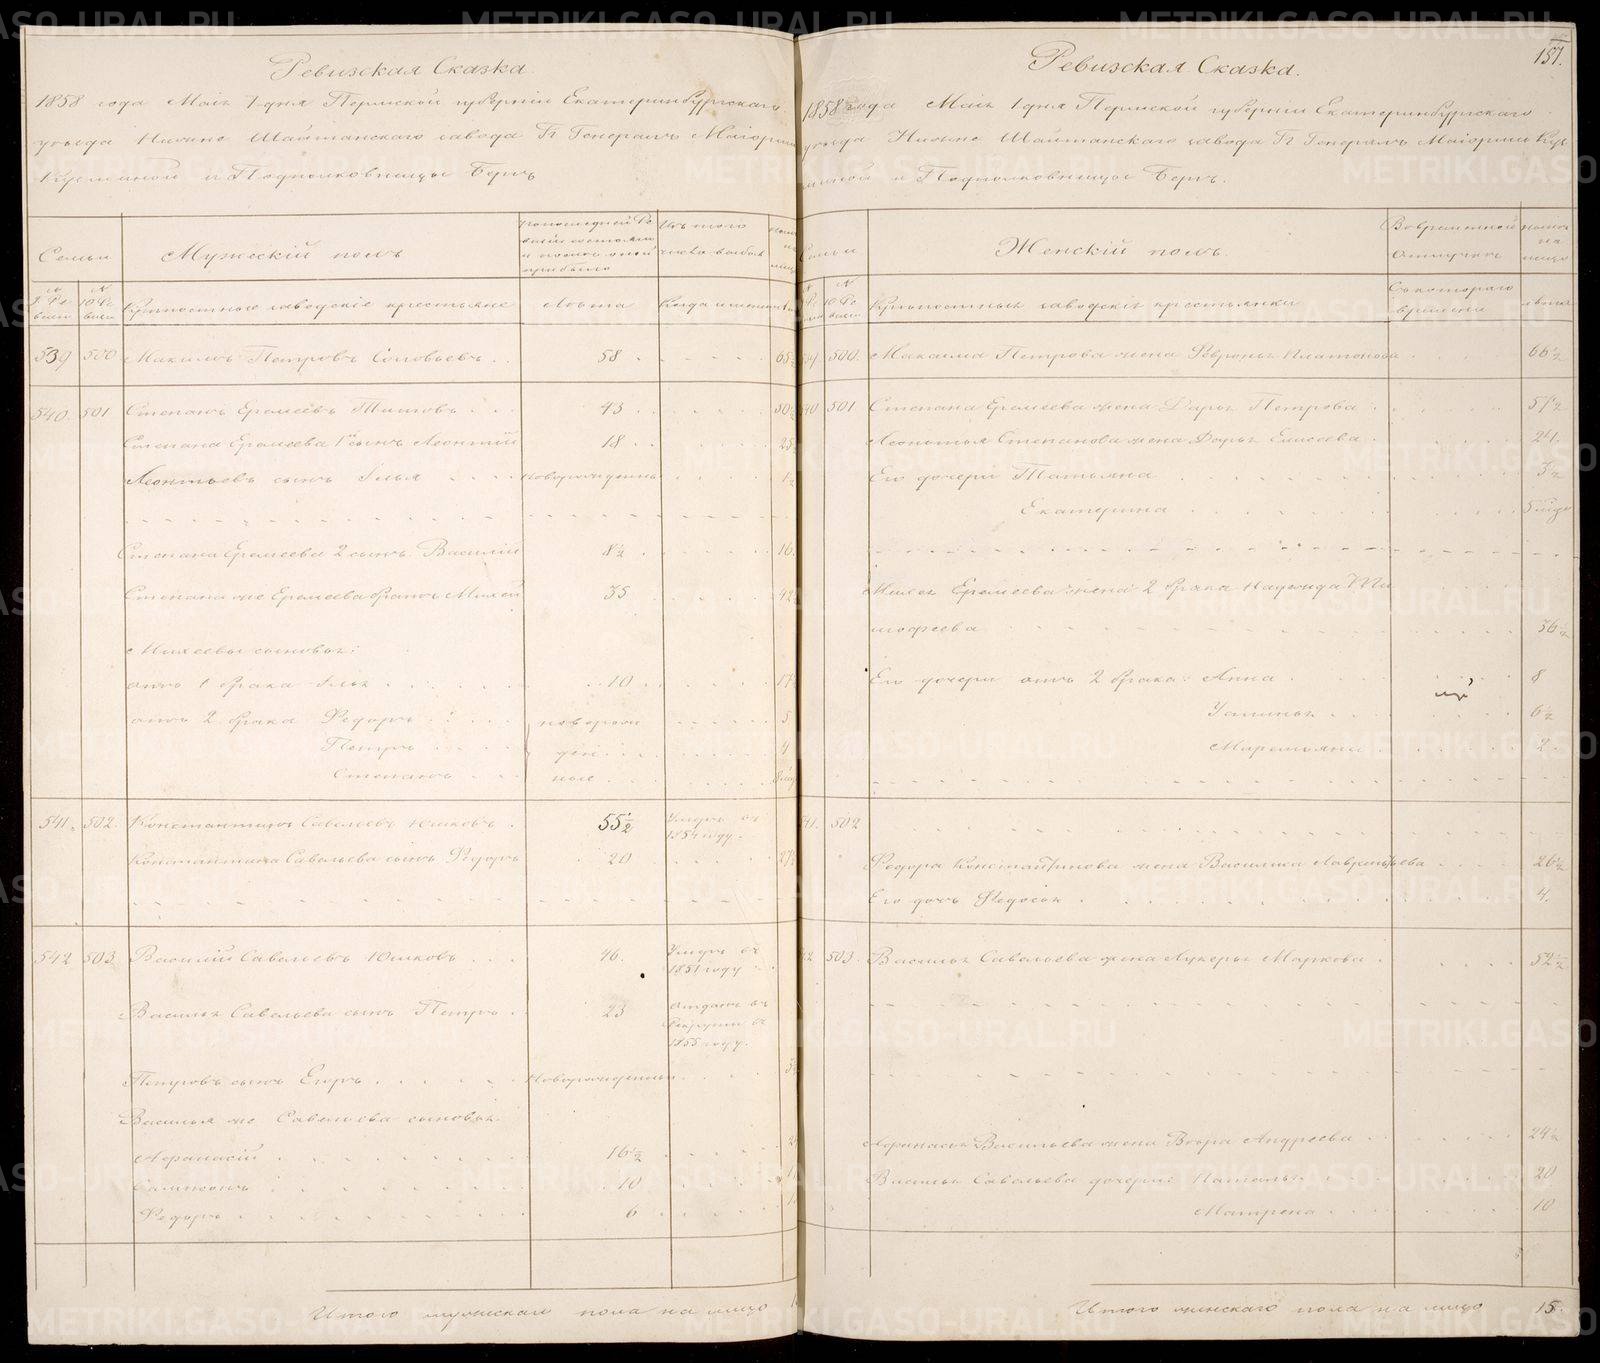 Ревизская Сказка
1858 года Маія 1 дня Пермской губерніи Екатеринбургскаго
уезда Нижне Шайтанскаго завода Гг Генералъ Маіорши
Кузьминой и Подполковницы Бергъ
Семьи
Мужескій полъ
Изъ того числа выбыло
Крепостные заводскіе крестьяне
Лета
Когда именно
539 500 Максимъ Петровъ Соловьевъ 58 65
540 501 Степанъ Еремеевъ Титовъ 43 50
Степана Еремеева 1 сынъ Леонтій 18 25
Леонтьевъ сынъ Илья Новорожденный
Степана Еремеева 2 сынъ Василій 8½ 16
Степана же Еремеева братъ Михей 35 42
Михеевы сыновья:
отъ 1 брака Илья 10 17
отъ 2 брака Федоръ новорож 5
Петръ ден 4
Степанъ ные
541 502 Константинъ Савельевъ Юшковъ 55½ Умеръ въ
1854 году
Константина Савельева сынъ Федоръ 20 27
542 503 Василій Савельевъ Юшковъ 46 Умеръ въ
1851 году
Василья Савельева сынъ Петръ 23 Отданъ въ
рекруты въ
1855 году.
Петровъ сынъ Егоръ Новорожденный
Василья же Савельева сыновья
Афанасій 16½
Сампсонъ 10
Федоръ 6
Итого мужескаго пола на лицо
151.
Ревизская Сказка.
1858 года Маія 1 дня Пермской губерніи Екатеринбургскаго
уезда Нижне Шайтанскаго завода Гг Генералъ Маіорши Кузь
миной и Подполковницы Бергъ.
Семьи
Женскій полъ.
Во временной отлучке
Крепостныя заводскія крестьянки
Съ котораго времени
лета
500. Максима Петрова жена Февронья Платонова 66½
540 501 Степана Еремеева жена Дарья Петрова 51½
Леонтья Степанова жена Дарья Елисеева 24.
Его дочери Татьяна 3½
Екатерина
Михея Еремеева жена 2 брака Надежда Ти
мофеева 36½
Его дочери отъ 2 брака: Анна 8
Устинья 6½
Маремьяна 2.
541. 502
Федора Константинова жена Василиса Лаврентьева 26½
Его дочь Федосья 4.
503. Василья Савельева жена Лукерья Маркова 52½
Афанасья Васильева жена Вера Андреева 24½
Василья Савельева дочери: Наталья 20
Матрена 10
Итого женскаго пола на лицо 15.
METRIKI.GASO-URAL.RU